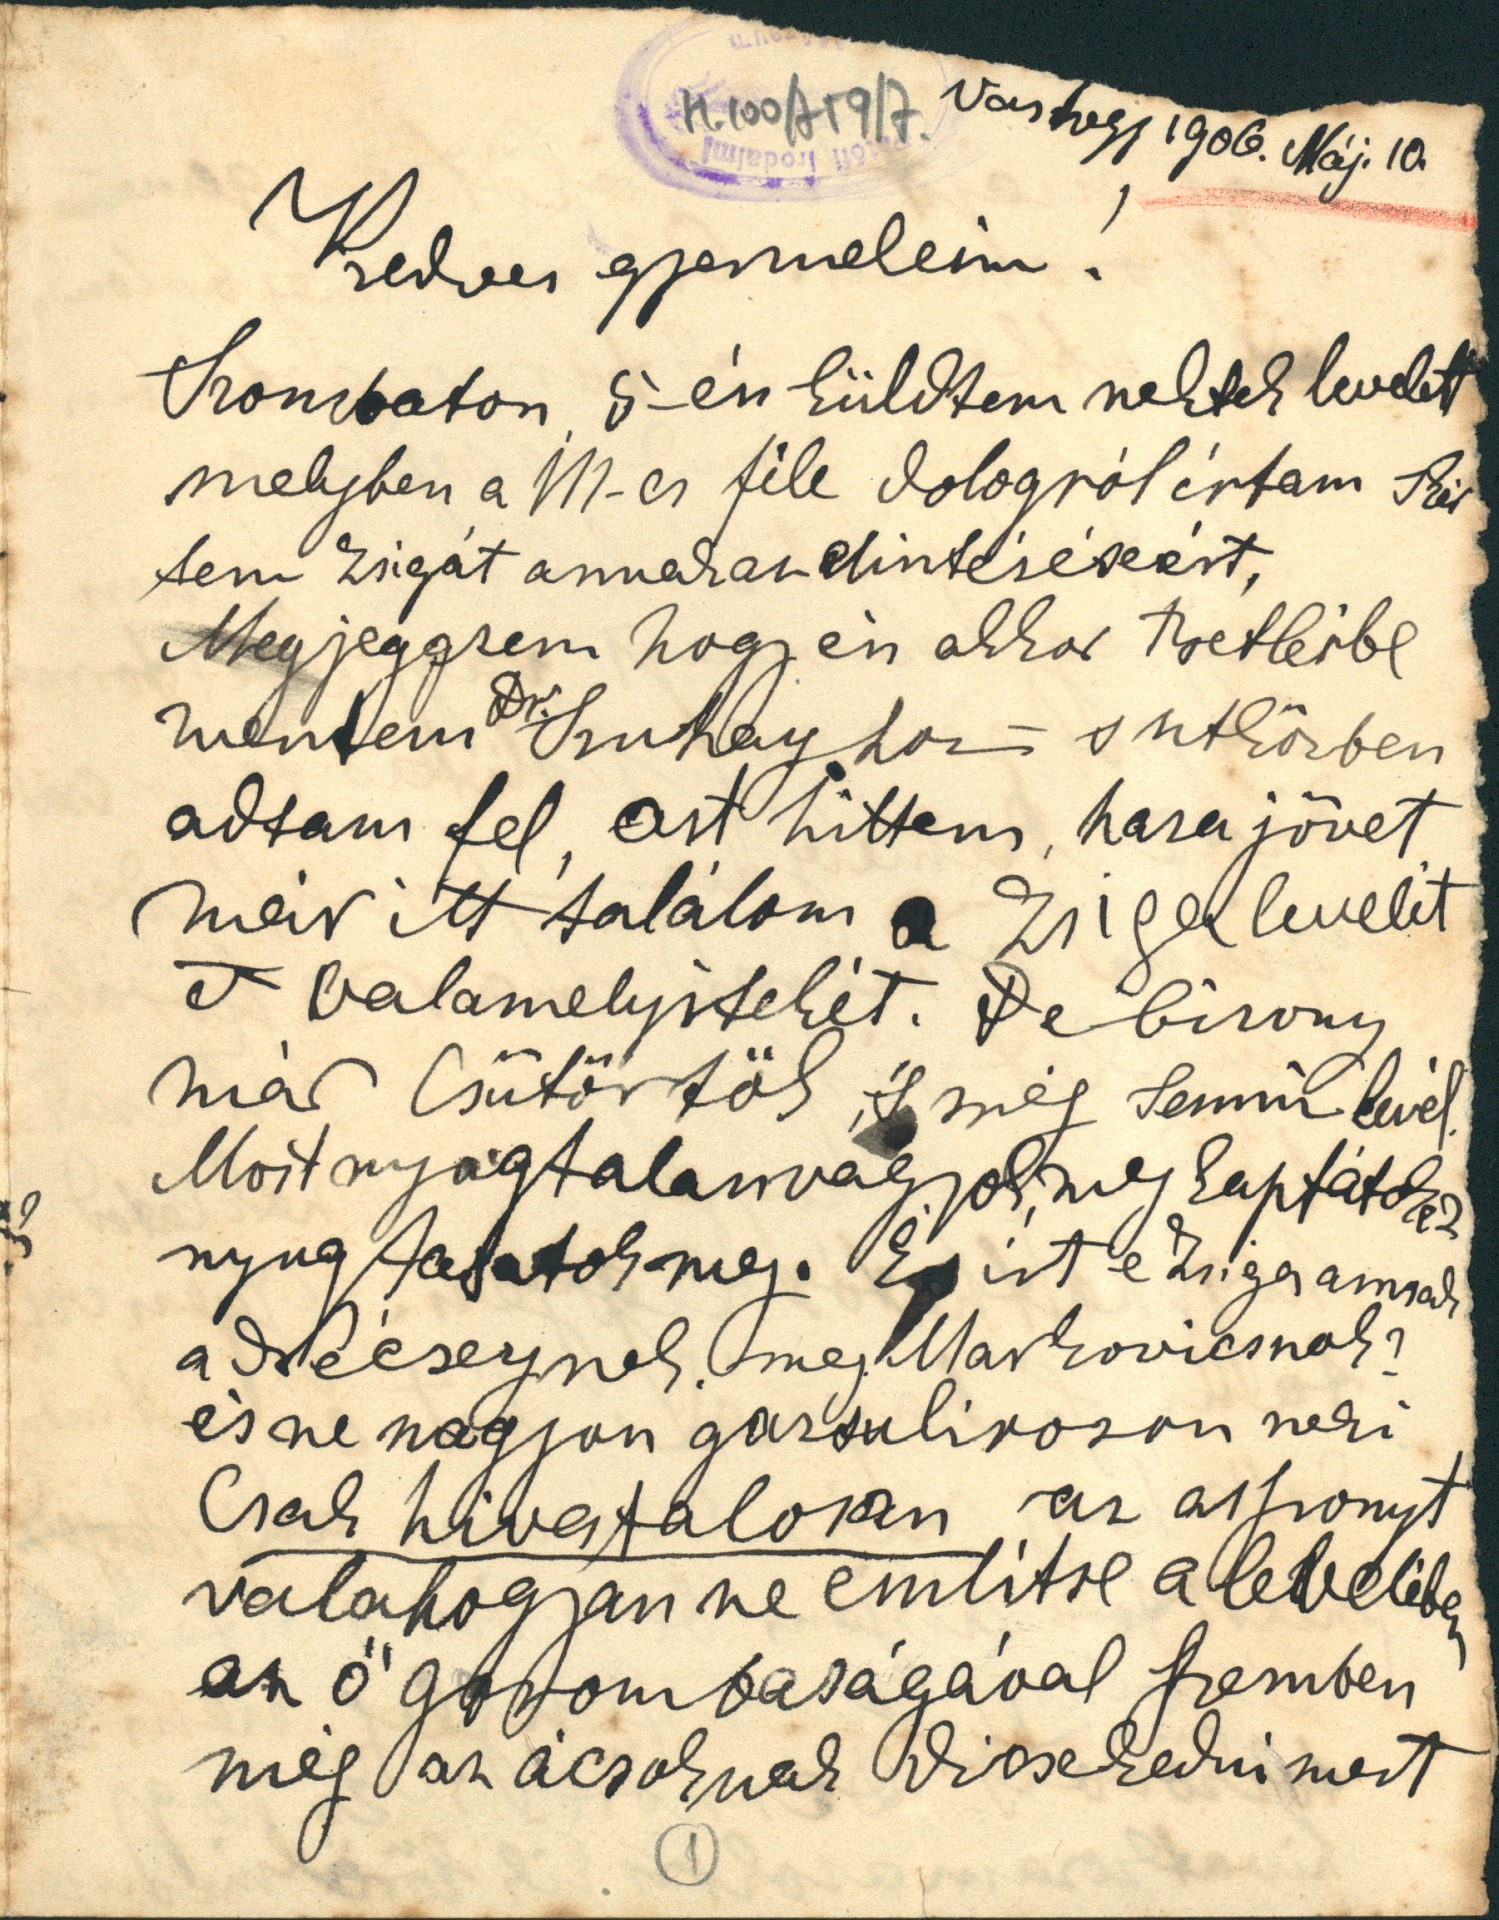 H.100/719/7.
Vashegy 1906. Máj. 10.
Kedves gyermekeim!
Szombaton, 5-én küldtem nektek levelet
melyben a M-es féle dologról írtam kér
tem Zsigát annak az elintézéséért,
Megjegyzem hogy én akkor Tsetlésbe
mentem Dr. Szuhay hoz – s utközben
adtam fel, azt hittem, haza jövet
már itt találom a Zsiga levelét
s valamelyitekét. De bizony
már Csütörtök, s még semmi levél.
Most nyugtalan vagyok, megkaptátok e?
nyugtassatok meg. És írt e Zsiga annak
a Drécseynek, meg Markovicsnak?
és ne nagyon gavalirosan neki
Csak hivatalosan az asszonyt
valahogyan ne említse a levelében
az ő gorombaságával szemben
még az ácsoknak dicsekedni mert
1